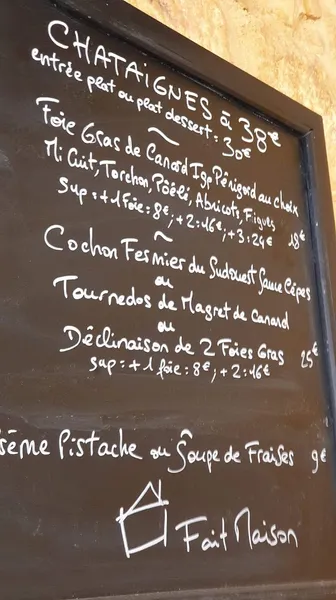 CHATAIGNES à 38€
entrée plat ou plat dessert : 30€
~
Foie Gras de Canard Igp Périgord au choix
Mi Cuit, Torchon, Pöêlé, Abricots, Figues 18€
sup : +1 Foie : 8€, +2 : 16€, +3 : 24€
~
Cochon Fermier du Sudouest Sauce Cèpes
ou
Tournedos de Magret de Canard
ou
Déclinaison de 2 Foies Gras 25€
sup : +1 foie : 8€, +2 : 16€
Pistache ou Soupe de Fraises 9€
Fait Maison